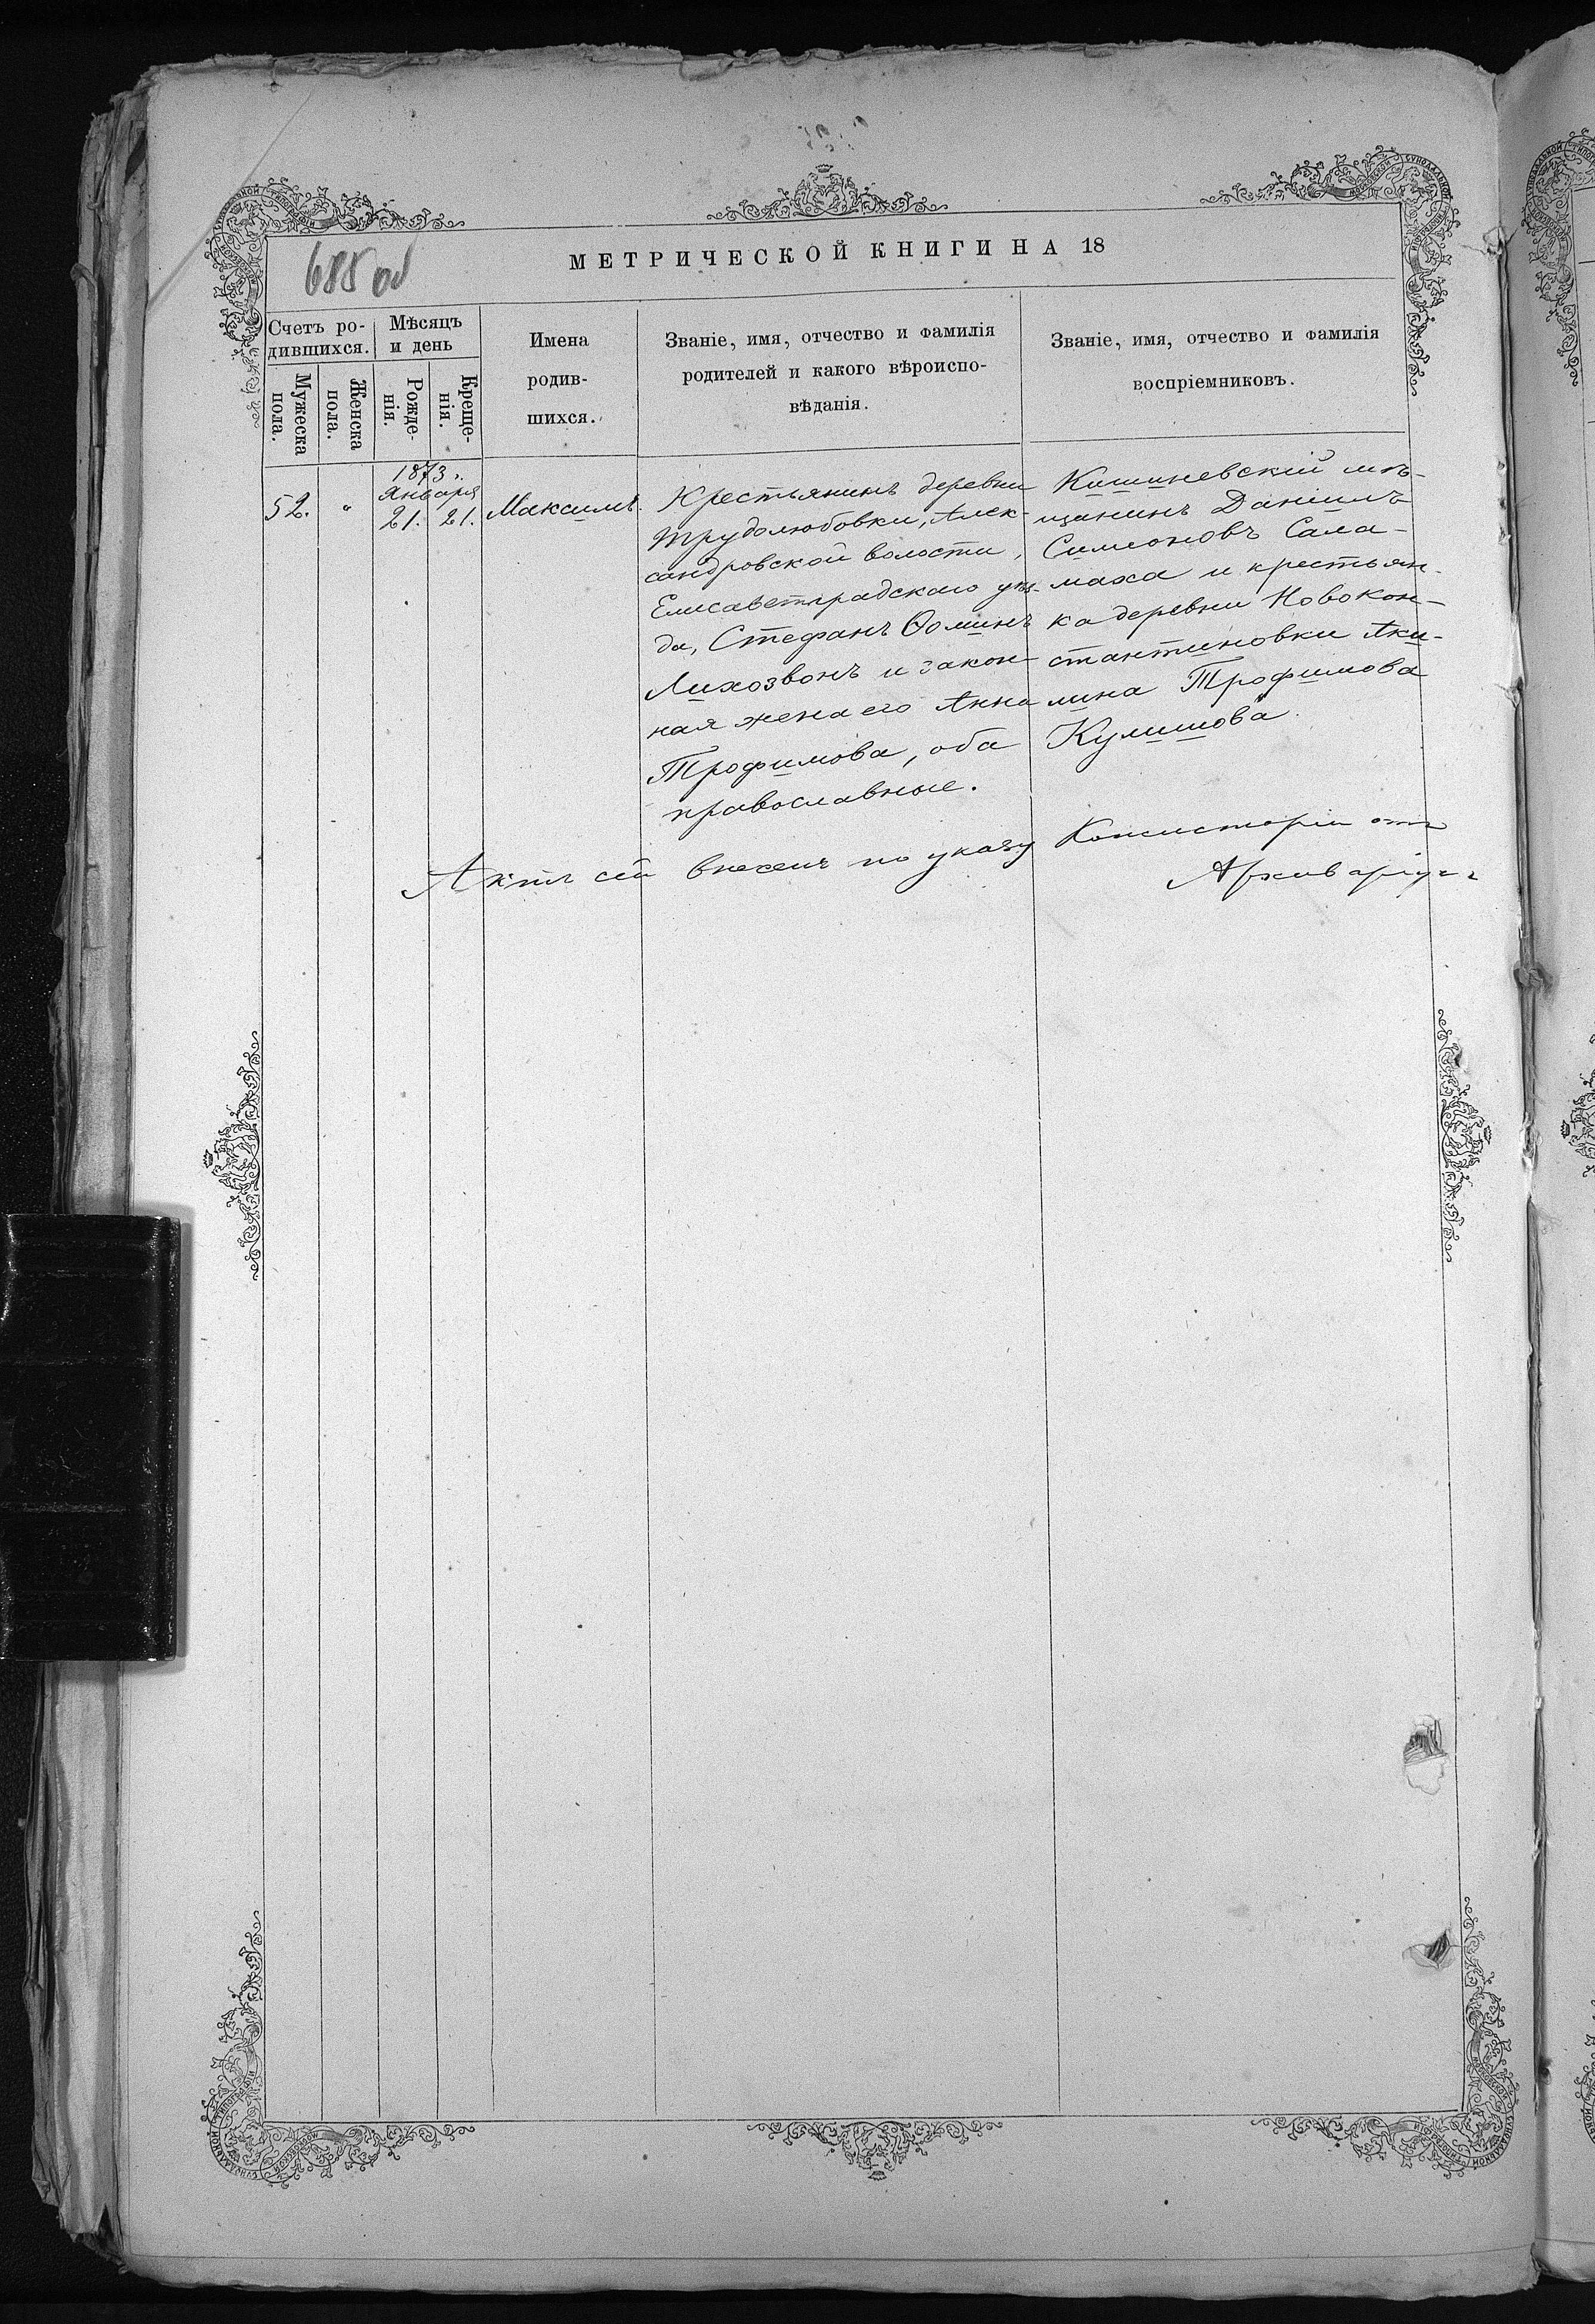 685 об
МЕТРИЧЕСКОЙ КНИГИ НА 18
Счетъ ро-
дившихся.
Мужеска
пола.
Женска
пола.
Мѣсяцъ
и день
Рожде-
нія.
Креще-
нія.
Имена
родив-
шихся.
Званіе, имя, отчество и фамилія
родителей и какого вѣроиспо-
вѣданія.
Званіе, имя, отчество и фамилія
воспріемниковъ.
52.
"
1873.
Января
21. 21.
Максимъ.
Крестьянинъ деревни
Трудолюбовки, Алек-
сандровской волости,
Елисаветградскаго уѣз-
да, Стефанъ Ѳоминъ
Лихозвонъ и закон-
ная жена его Анна
Трофимова, оба
православные.
Кишиневскій мѣ-
щанинъ Даніилъ
Симеоновъ Сала-
маха и крестьян-
ка деревни Новокон-
стантиновки Аки-
лина Трофимова
Кулишова.
Актъ сей внесенъ по указу Консисторіи отъ
Архиваріусъ